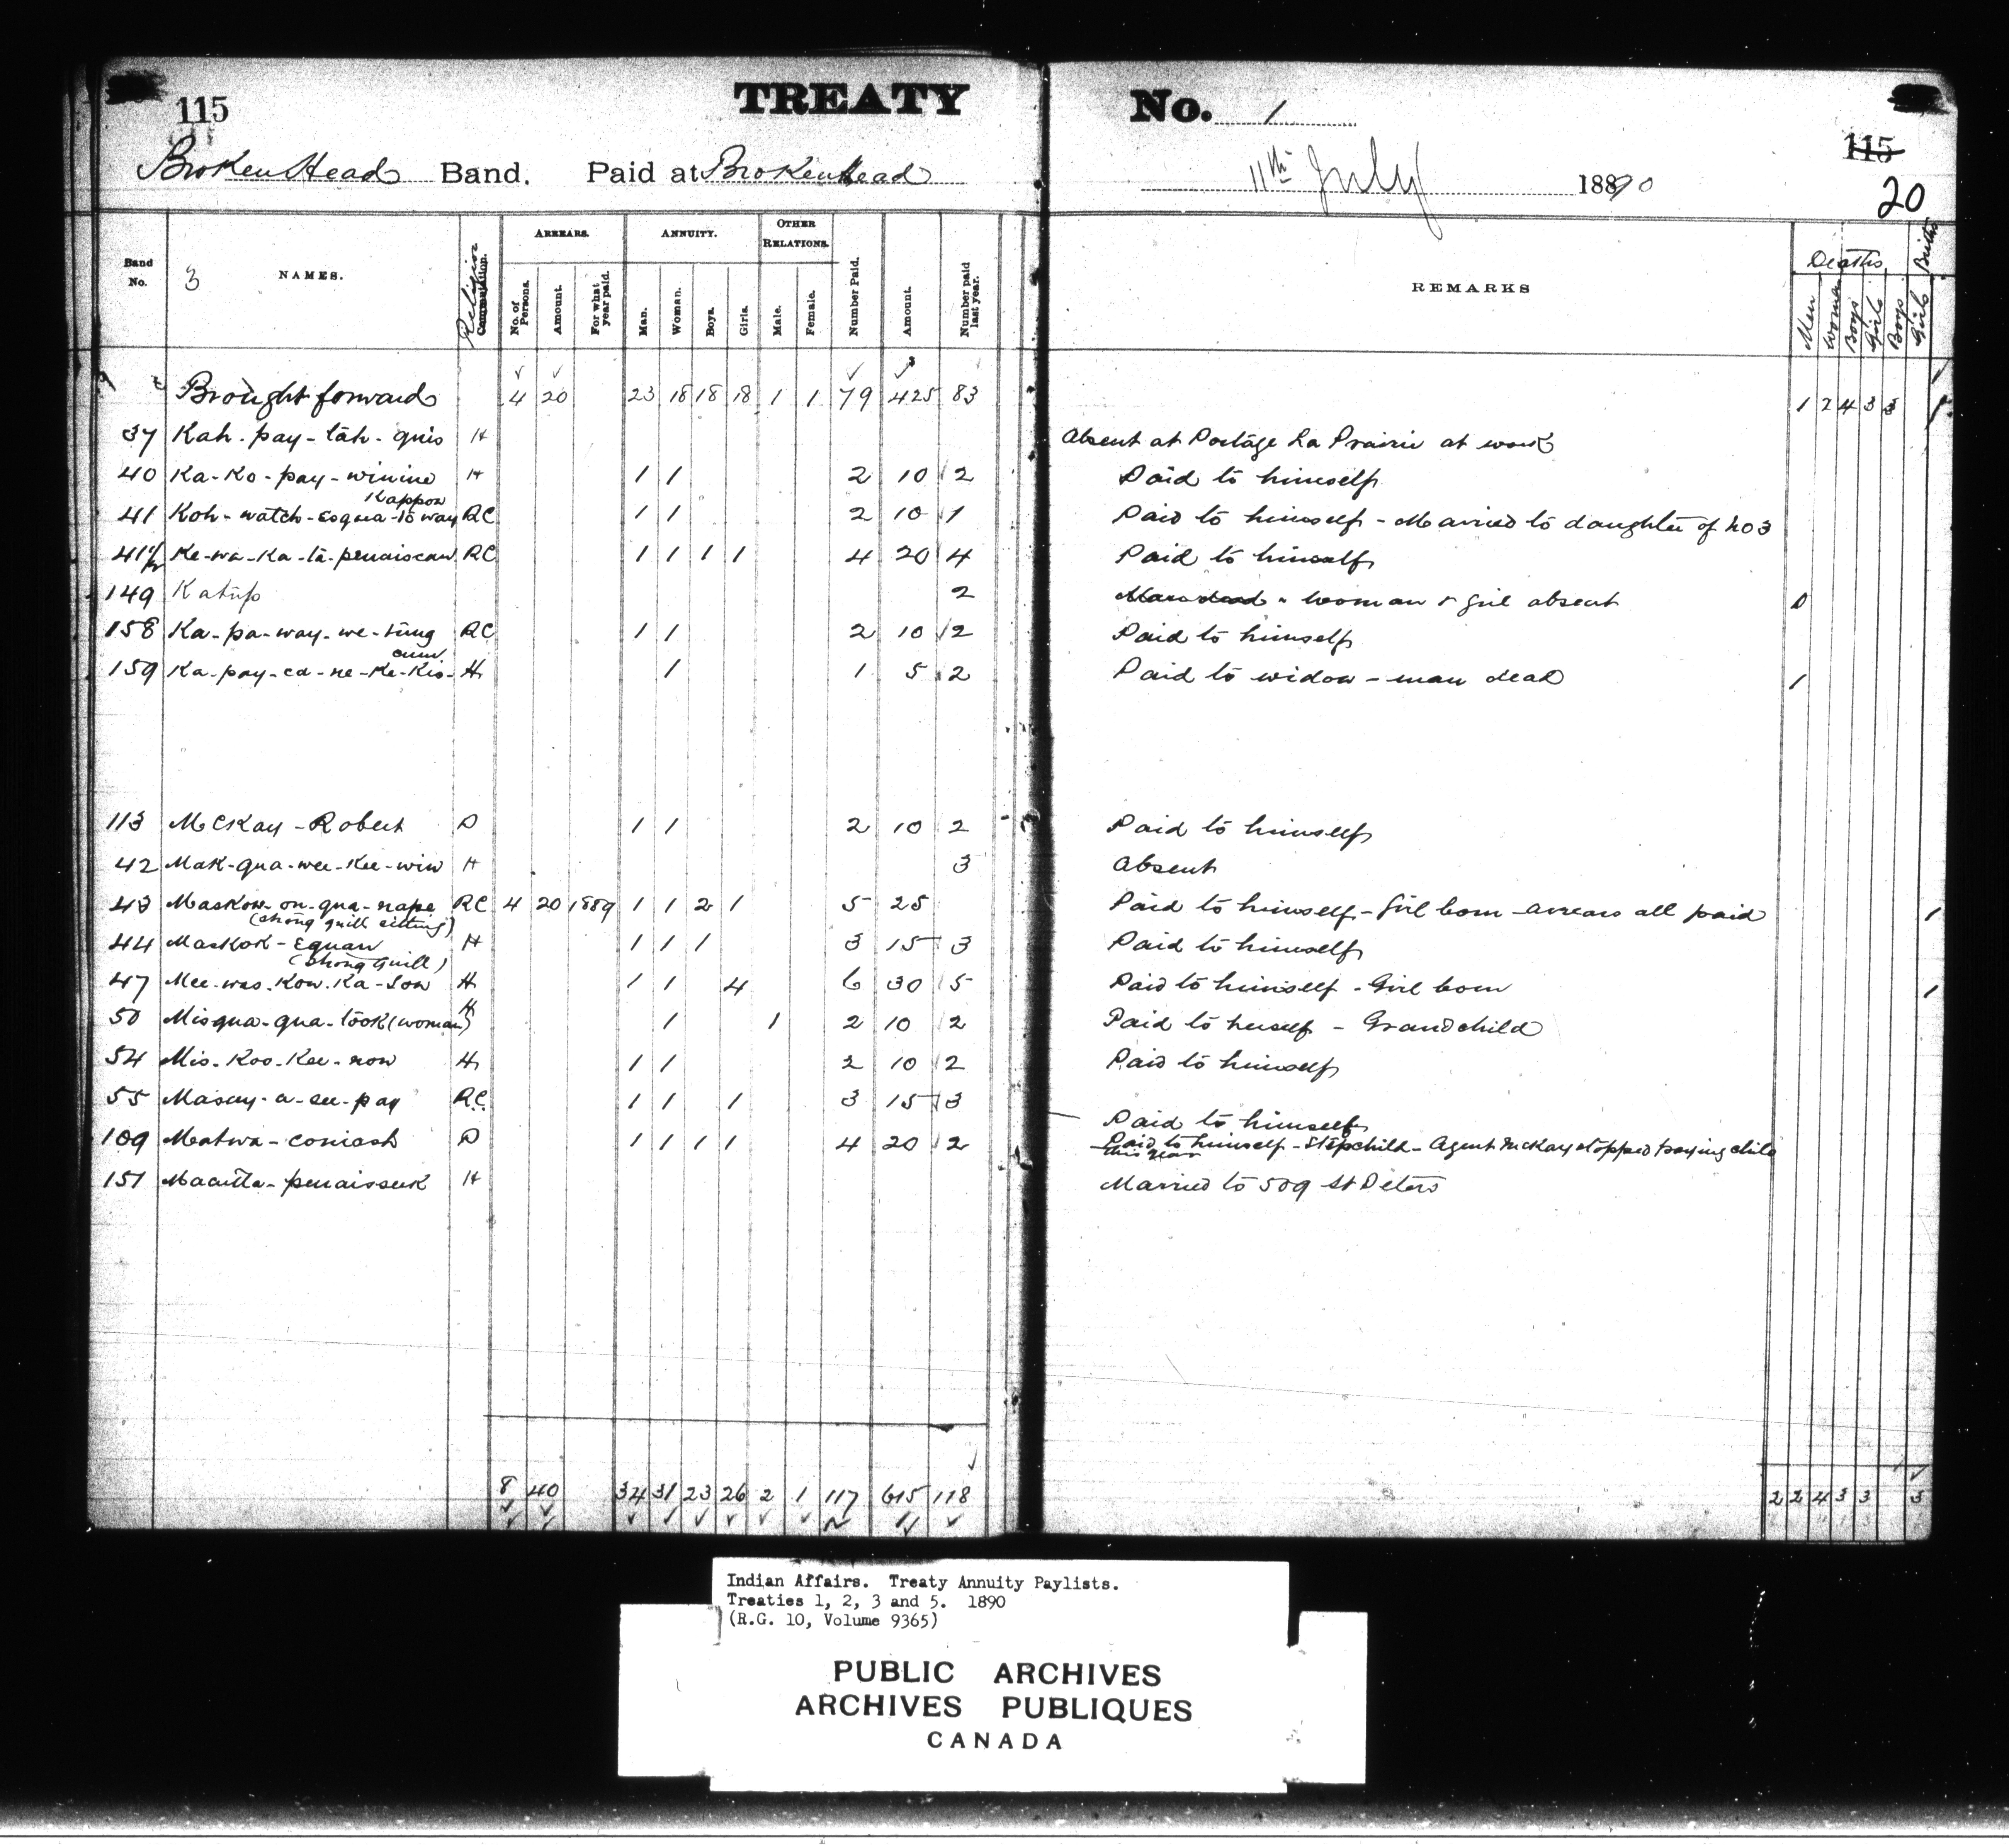 115
TREATY No. 1
115
20
Broken Head Band. Paid at Broken Head 11th July 1890
Band No. 3 NAMES. Religion ARREARS. No. of Persons. Amount. For what year paid. ANNUITY. Man. Woman. Boys. Girls. OTHER RELATIONS. Male. Female. Number Paid. Amount. Number paid last year. REMARKS Deaths Men Women Boys Girls Births Boys Girls
Brought forward 4 20 23 18 18 18 1 1 79 425 83 1 2 4 3 3 1
37 Kah-pay-tah-quis H Absent at Portage La Prairie at work
40 Ka-Ko-pay-winine H 1 1 2 10 2 Paid to himself
Kappow
41 Koh-watch-esqua-to way RC 1 1 2 10 1 Paid to himself - Married to daughter of no 3
41½ Ke-wa-Ka-ta-penaiscaw RC 1 1 1 1 4 20 4 Paid to himself
149 Katup 2 Man dead - woman & girl absent 0
158 Ka-pa-way-we-tung RC 1 1 2 10 2 Paid to himself
159 Ka-pay-ca-ne-Ke-Kis- H 1 1 5 2 Paid to widow - man dead 1
113 McKay - Robert P 1 1 2 10 2 Paid to himself
42 Mak-qua-wee-Kee-win H 3 Absent
43 Maskow-on-qua-nape RC 4 20 1889 1 1 2 1 5 25 Paid to himself - Girl born - arrears all paid 1
(Strong quill sitting)
44 Maskok-Equan H 1 1 1 3 15 3 Paid to himself
(Strong quill)
47 Mee-was-Kow-Ka-Sow H 1 1 4 6 30 5 Paid to himself - Girl born 1
50 Misqua-qua-took (woman) H 1 1 2 10 2 Paid to herself - Grandchild
54 Mis-Koo-Kee-now H 1 1 2 10 2 Paid to himself
55 Masay-a-see-pay R.C. 1 1 1 3 15 3 Paid to himself
109 Matwa-comash P 1 1 1 1 4 20 2 Paid to himself - Stepchild - Agent McKay stopped paying child
this year
151 Macatta-penaisseek H Married to 509 St Peters
8 40 34 31 23 26 2 1 117 615 118 2 2 4 3 3 3
Indian Affairs. Treaty Annuity Paylists.
Treaties 1, 2, 3 and 5. 1890
(R.G. 10, Volume 9365)
PUBLIC ARCHIVES
ARCHIVES PUBLIQUES
CANADA